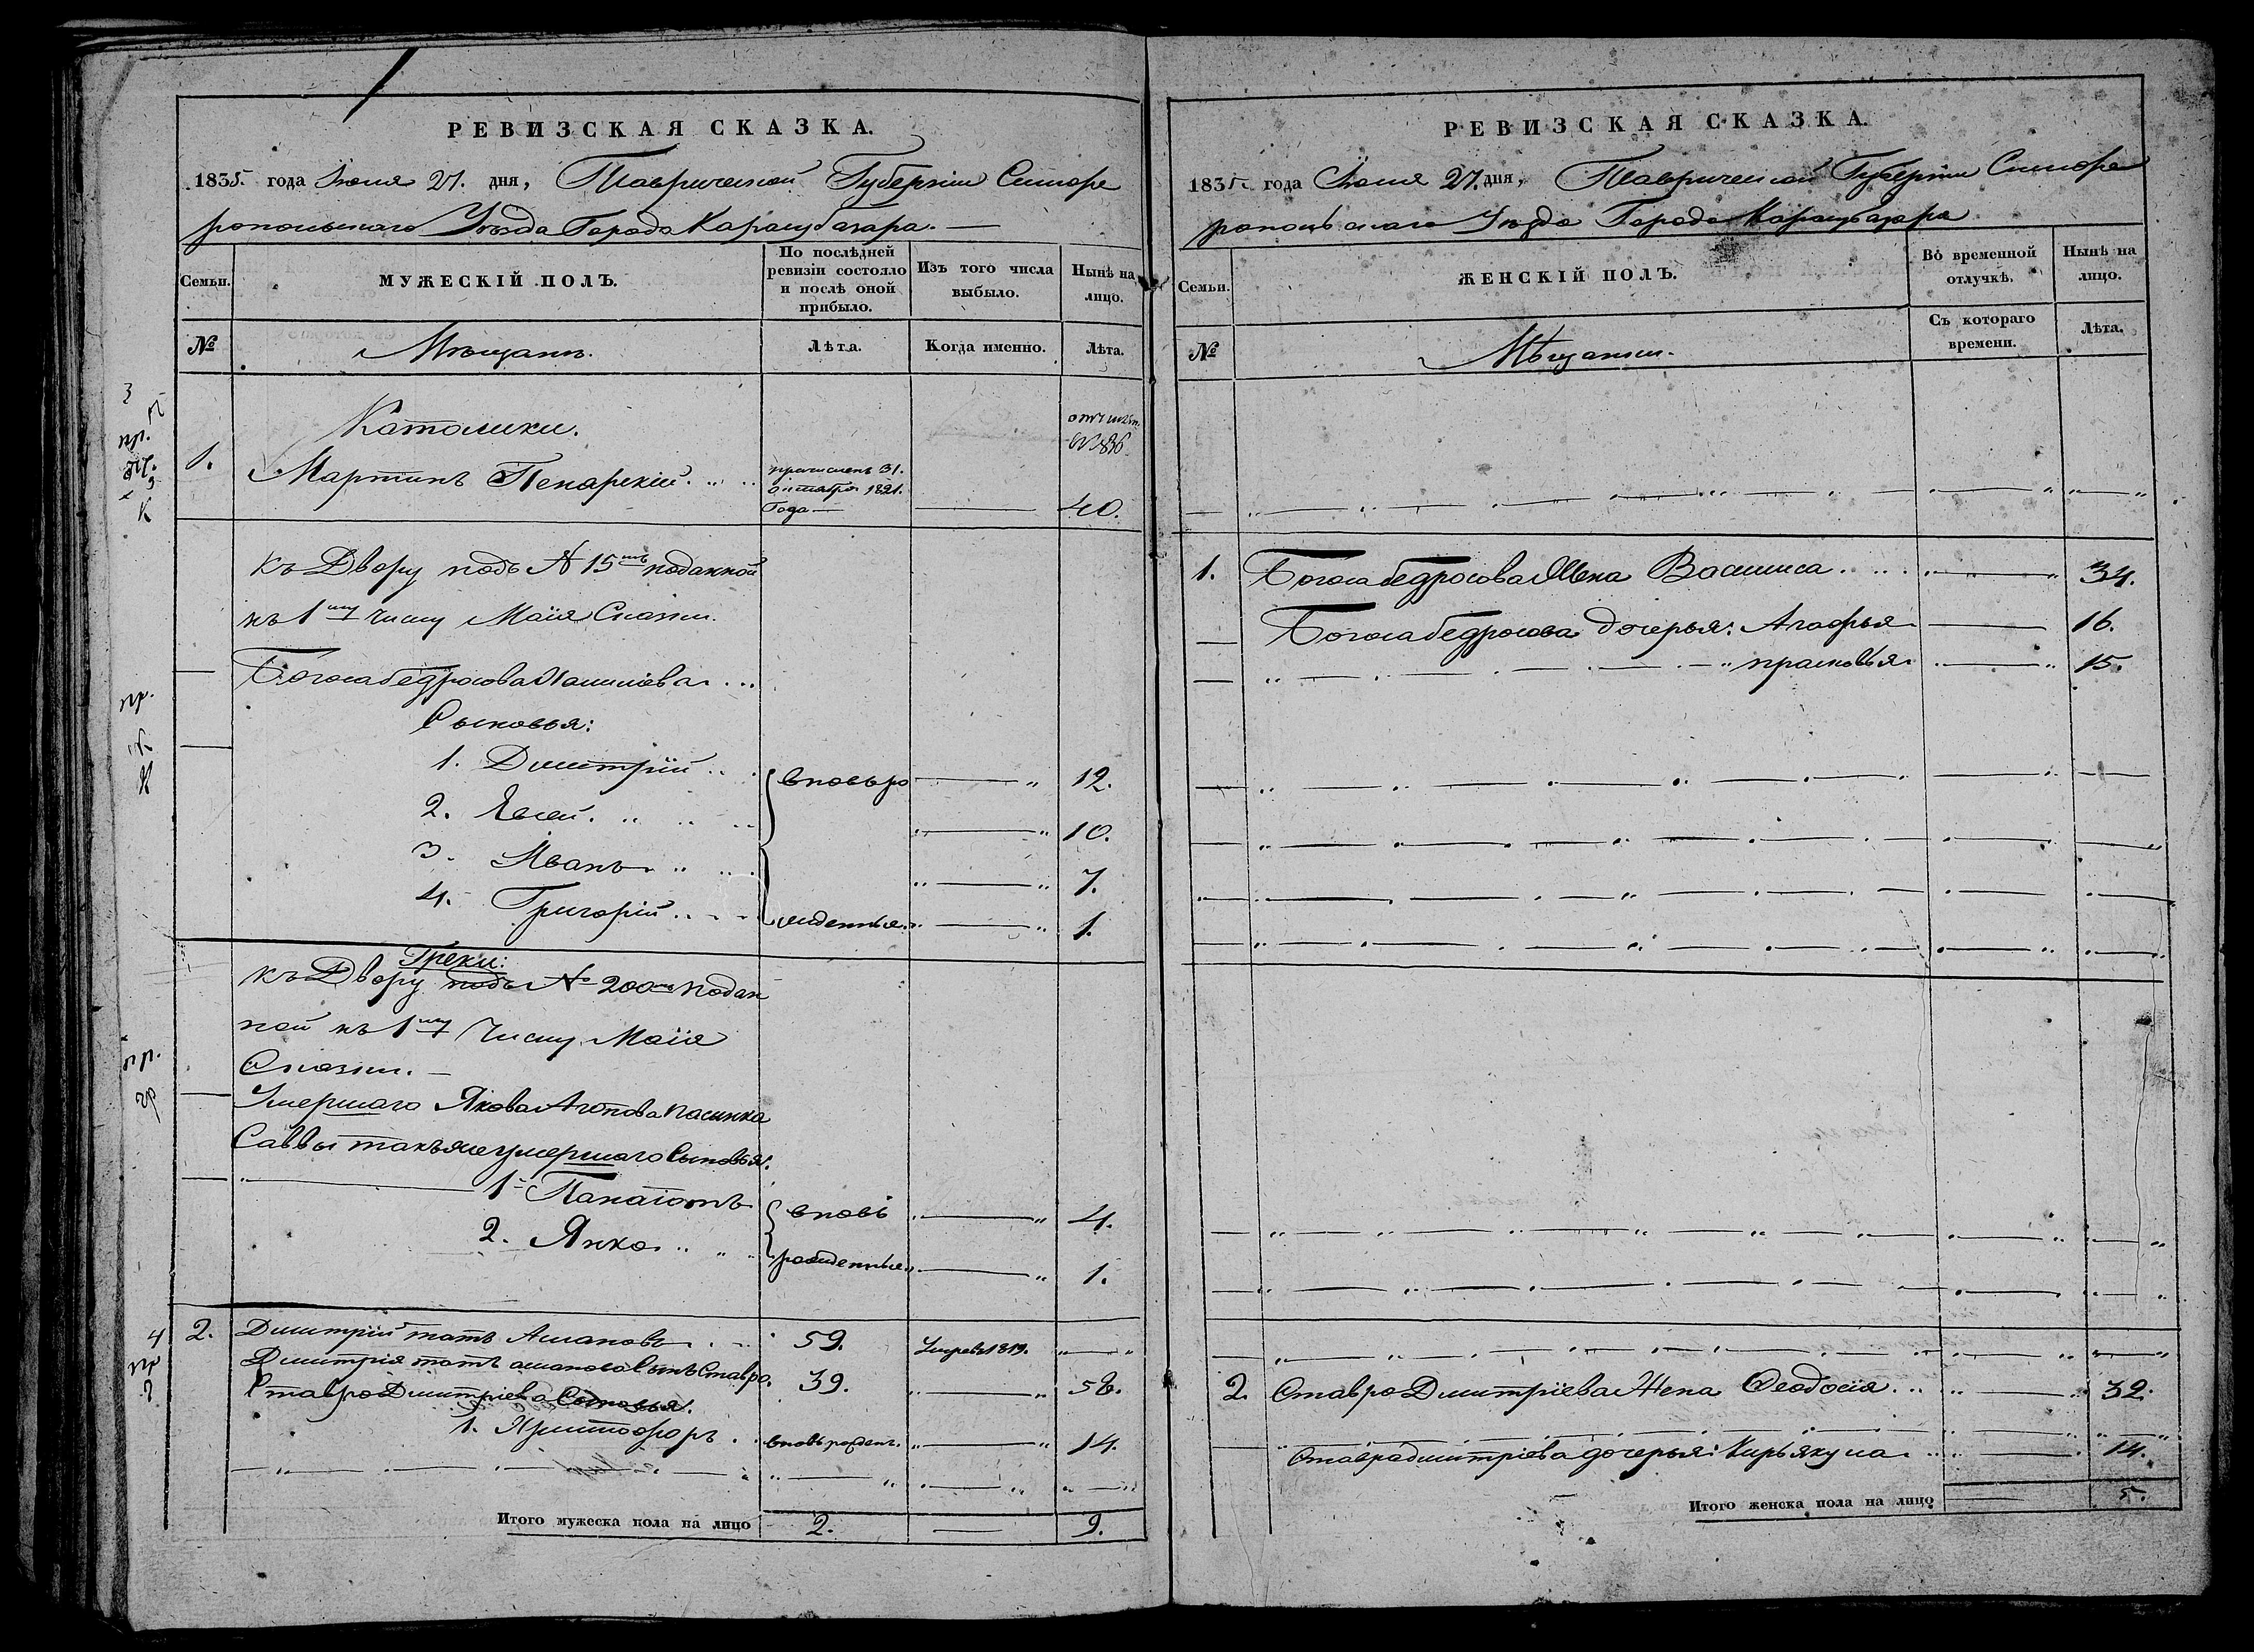 РЕВИЗСКАЯ СКАЗКА.
1835. года Іюня 27. дня, Таврической Губерніи Симфе
ропольскаго Уѣзда Города Карасубазара.
Семьи.
МУЖЕСКІЙ ПОЛЪ.
По послѣдней ревизіи состояло и послѣ оной прибыло.
Изъ того числа выбыло.
Нынѣ на лицо.
№
Мѣщанъ.
Лѣта.
Когда именно.
Лѣта.
Католики.
1. Мартинъ Пекарскій
причисленъ 31.
октября 1821.
Года
40.
къ Двору подъ № 15мъ поданной
къ 1му числу Маія Сказки.
Богоса бедросова
Сыновья:
1. Дмитрій 12.
2. Евсей. 10.
3. Иванъ 7.
4. Григорій 1.
вновьро
жденныя
Греки:
къ Двору подъ № 200мъ подан
ной къ 1му Числу Маія
Сказки.
Умершаго Якова Агопова пасынка
Саввы такъже умершаго Сыновья.
1 Панаіотъ вновь 4.
2. Янко рожденныя 1.
2. Дмитрій татъ Аслановъ 59. Умре въ 1819.
Дмитрія татъ асланова Сынъ Ставро. 39. 58.
Ставро Дмитріева Сыновья.
1. Христофоръ вновьрожден. 14.
Итого мужеска пола на лицо 2. 9.
РЕВИЗСКАЯ СКАЗКА.
1835 года Іюня 27. дня, Таврической Губерніи Симфе
ропольскаго Уѣзда Города Карасубазара
Семьи.
ЖЕНСКІЙ ПОЛЪ.
Во временной отлучкѣ.
Нынѣ на лицо.
№
Мѣщанки.
Съ котораго времени.
Лѣта.
1. Богоса бедросова Жена Василиса 34.
Богоса бедросова дочерья: Агафья 16.
прасковья 15.
2. Ставро Дмитріева Жена Феодосія 32.
Ставра дмитріева дочерья: Кирьякула 14.
Итого женска пола на лицо 5.